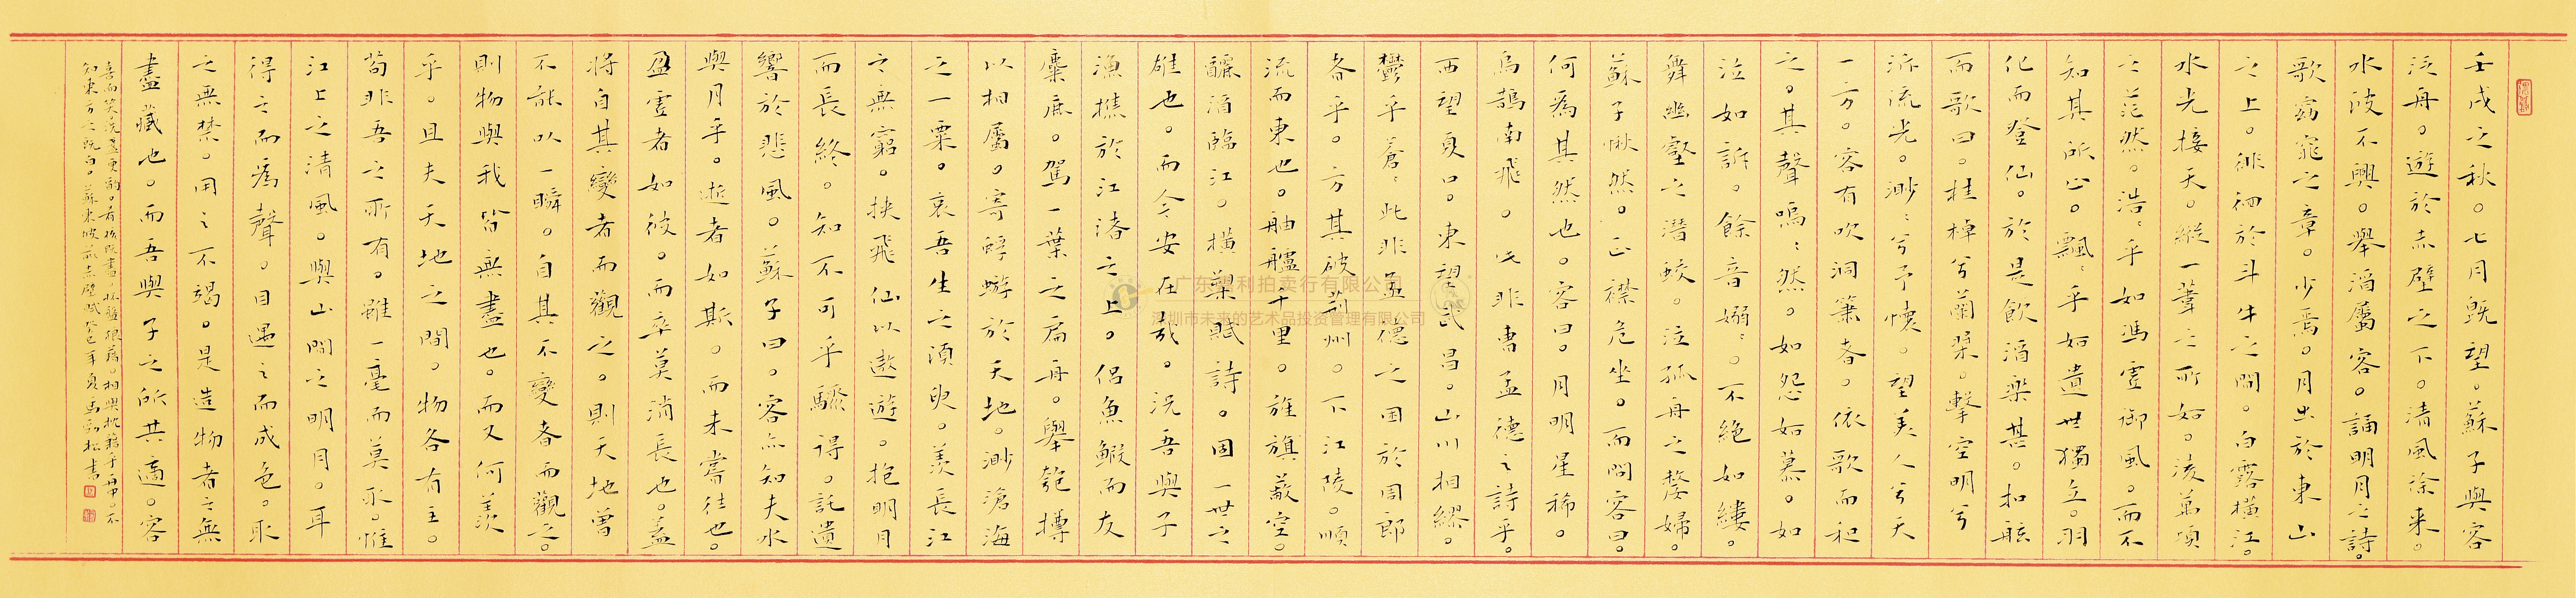 壬戌之秋。七月既望。蘇子與客
泛舟。遊於赤壁之下。清風徐来。
水波不興。舉酒屬客。誦明月之詩。
歌窈窕之章。少焉。月出於東山
之上。徘徊於斗牛之間。白露橫江。
水光接天。縱一葦之所如。淩萬頃
之茫然。浩〻乎如馮虛御風。而不
知其所止。飄〻乎如遺世獨立。羽
化而登仙。於是飲酒樂甚。扣舷
而歌曰。桂棹兮蘭槳。擊空明兮
泝流光。渺〻兮予懷。望美人兮天
一方。客有吹洞簫者。依歌而和
之。其聲嗚〻然。如怨如慕。如
泣如訴。餘音嫋〻。不絕如縷。
舞幽壑之潛蛟。泣孤舟之嫠婦。
蘇子愀然。正襟危坐。而問客曰。
何為其然也。客曰。月明星稀。
烏鵲南飛。此非曹孟德之詩乎。
西望夏口。東望武昌。山川相繆。
鬱乎蒼〻此非孟德之困於周郎
者乎。方其破荊州。下江陵。順
流而東也。舳艫千里。旌旗蔽空。
釃酒臨江。橫槊賦詩。固一世之
雄也。而今安在哉。況吾與子
漁樵於江渚之上。侶魚鰕而友
麋鹿。駕一葉之扁舟。舉匏樽
以相屬。寄蜉蝣於天地。渺滄海
之一粟。哀吾生之須臾。羨長江
之無窮。挾飛仙以遨遊。抱明月
而長終。知不可乎驟得。託遺
響於悲風。蘇子曰。客亦知夫水
與月乎。逝者如斯。而未嘗往也。
盈虛者如彼。而卒莫消長也。蓋
將自其變者而觀之。則天地曾
不能以一瞬。自其不變者而觀之。
則物與我皆無盡也。而又何羨
乎。且夫天地之間。物各有主。
苟非吾之所有。雖一毫而莫取。惟
江上之清風。與山間之明月。耳
得之而為聲。目遇之而成色。取
之無禁。用之不竭。是造物者之無
盡藏也。而吾與子之所共適。客
喜而笑。洗盞更酌。肴核既盡。杯盤狼藉。相與枕藉乎舟中。不
知東方之既白。蘇東坡前赤壁賦癸巳年 馬勁松書
广东 利拍卖行有限公司
深圳市未来的艺术品投资管理有限公司